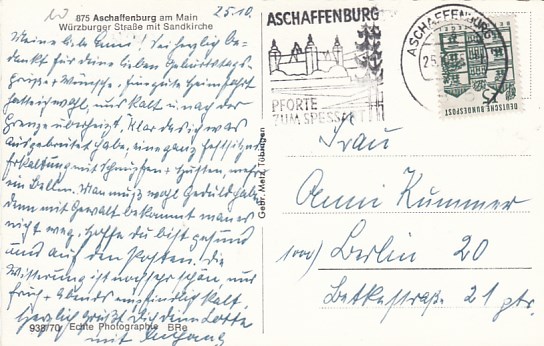 875 Aschaffenburg am Main
Würzburger Straße mit Sandkirche
25.10.
Meine liebe Anni! Sei herzlich be-
dankt für deine lieben Geburtstags-
grüße + Wünsche. Eine gute Heimfahrt
hatte ich wohl, nur kalt u. nach der
Grenze überheizt. Klar daß ich was
ausgebrütet habe, eine ganz festsitzende
Erkältung mit Schnupfen + Husten, mehr
ein Bellen. Man muß wohl Geduld haben
denn mit Gewalt bekommt man es
nicht weg. Hoffe du bist gesund
und auf dem Posten. Die
Witterung ist noch sehr schön, nur
früh + abends empfindlich kalt.
Herzlich grüßt Dich deine Lotte
mit Anhang
938/70 Echte Photographie BRe
Gebr. Metz, Tübingen
ASCHAFFENBURG
PFORTE
ZUM SPESSART
ASCHAFFENBURG
25.
DEUTSCHE BUNDESPOST
Frau
Anni Kummer
1000) Berlin 20
Betckestraße 21 ptr.